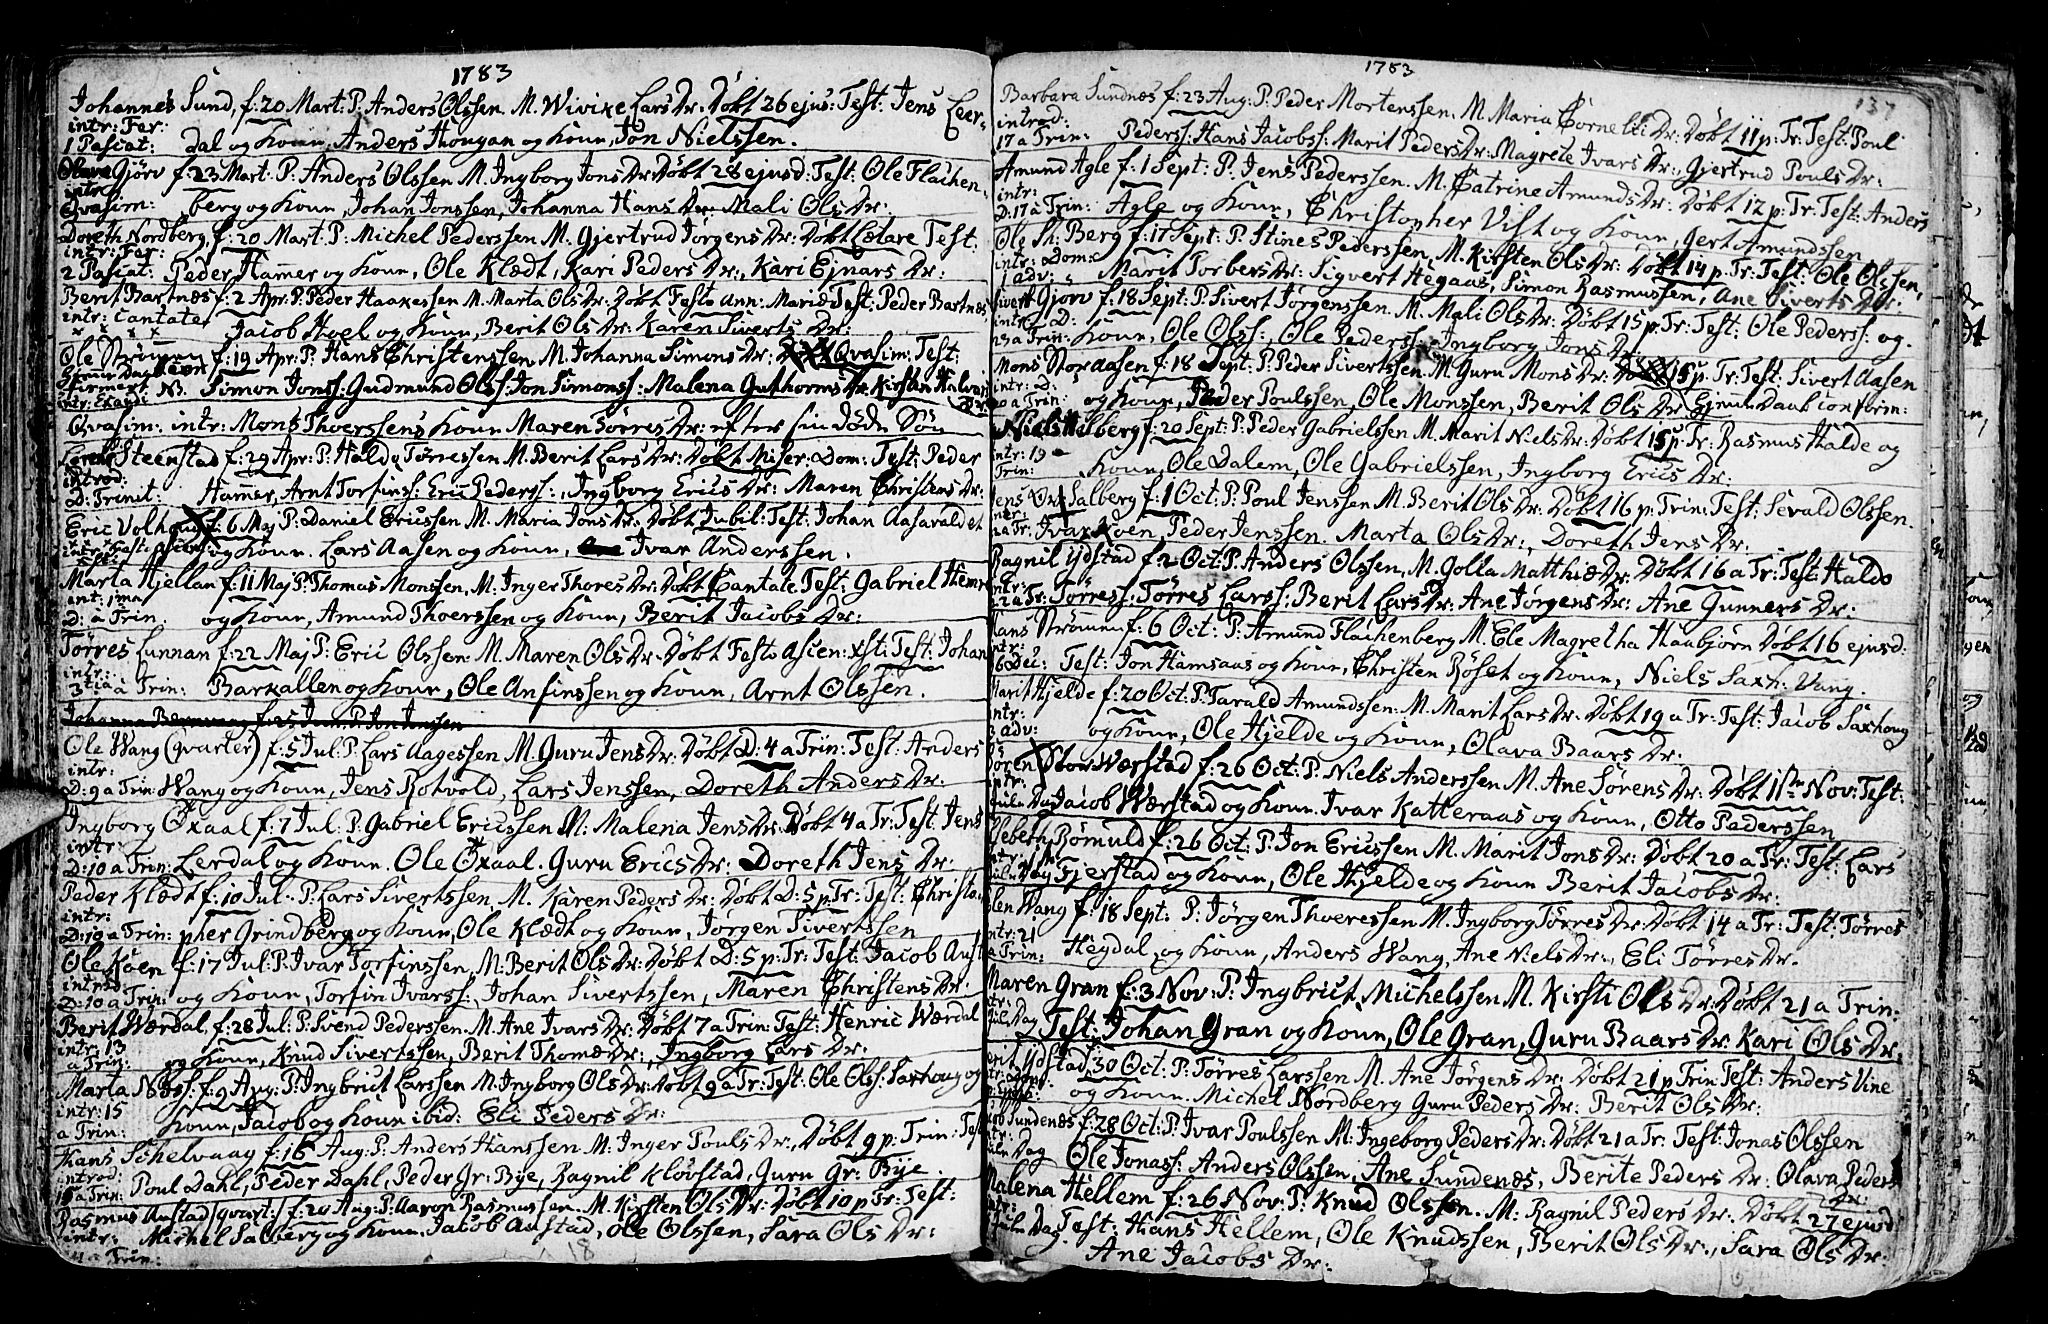 1783
Johannes Sund, f: 20 Mart: P: Anders Olssen. M. Wivike Lars Dr: Døbt 26 ejus: Test: Jens Leer-
intr: Fer:
1 Pascat: dal og Koun, Anders Thougan og Koun, Jon Nielssen.
Olava Gjörv f: 23 Mart: P. Anders Olssen M. Ingborg Jons Dr: Døbt 28 ejusd: Test: Ole Flachen-
intr:
Qvasim: berg og Koun, Johan Jonssen, Johanna Hans Dr: Mali Ols Dr:
Doreth Nordberg, f: 20 Mart: P: Michel Pederssen M. Gjertrud Jørgens Dr: Døbt Lætare Test:
intr: Fer:
2 Pascat: Peder Hammer og Koun, Ole Klædt, Kari Peders Dr:, Kari Ejnars Dr:
Berit Bartnæs f: 2 Apr: P: Peder Haakessen M. Marta Ols Dr: Døbt Festo Ann: Mariæ Test: Peder Bartnæs
intr: Cantate
Jacob Hoel og Koun, Berit Ols Dr: Karen Siverts Dr:
Ole Strömen f: 19 Apr: P: Hans Christenssen M. Johanna Simons Dr: Qvasim: Test:
firmert NB. Simon Jonss: Gudmund Olss: Jon Simonss: Malena Guthorms Dr: Kirsten Halvors
intr: Exaudi Dr:
Qvasim: intr: Mons Thoerssens Koun Maren Törres Dr: efter sin døde Søn
Steenstad f: 29 Apr: P: Haldo Törressen M. Berit Lars Dr: Døbt Miser: Dom: Test: Peder
introd:
D: Trinit: Hammer, Arnt Torfinss: Eric Pederss:, Ingborg Erics Dr: Maren Christens Dr:
Eric Volhaug f: 6 Maj P: Daniel Ericssen M. Maria Jons Dr: Døbt Jubil: Test: Johan Aasaraldet
og Koun. Lars Aasen og Koun, Ivar Anderssen.
Marta Hjellan f: 11 Maj P: Thomas Monssen, M. Inger Thores Dr: Døbt Cantate Test: Gabriel Hemre
int: 1ma
D: a Trin. og Koun, Amund Thoerssen og Koun, Berit Jacobs Dr:
Törres Lunnan f: 22 Maj P: Eric Olssen M. Maren Ols Dr: Døbt Festo Ascen: xsti: Test: Johan
intr:
3tia a Trin: Barkallen og Koun, Ole Anfinssen og Koun, Arnt Olssen.
Johanna f: 25 Jun: P. Jon Jenssen
Ole Wang (qvarter) f: 5 Jul: P: Lars Aagessen M. Guru Jens Dr: Døbt D: 4 a Trin: Test: Anders
intr:
D: 9 a Trin: Wang og Koun, Jens Rotvold, Lars Jenssen, Doreth Anders Dr:
Ingborg Öxaal f: 7 Jul: P: Gabriel Ericssen M: Malena Jens Dr: Døbt 4 a Tr: Test: Jens
intr:
D: 10 a Trin: Lerdal og Koun. Ole Öxaal. Guru Erics Dr: Doreth Jens Dr:
Peder Klædt f: 10 Jul: P: Lars Sivertssen M. Karen Peders Dr: Døbt D: 5 p: Tr: Test: Christo-
intr:
D: 10 a Trin: pher Grindberg og Koun, Ole Klædt og Koun, Jørgen Sivertssen
Ole Koen f: 17 Jul: P: Ivar Torfinssen, M: Berit Ols Dr: Døbt D: 5 p: Tr: Test: Jacob Aust
introd:
D: 10 a Trin: og Koun, Torfin Ivarss: Johan Sivertssen, Maren Christens Dr:
Berit Wærdal, f: 28 Jul: P: Svend Pederssen. M: Ane Ivars Dr: Døbt 7 a Trin: Test: Henric Wærdal
intr: 13
a Trin: og Koun, Knud Sivertssen, Berit Thomæ Dr:, Ingborg Lars Dr:
Marta Næss: f: 9 Aug: P: Ingbrict Larssen M: Ingborg Ols Dr: Døbt 9 a Tr: Test: Ole Olss: Saxhoug og
intr: 15
a Trin: Koun, Jacob og Koun ibid: Eli Peders Dr:
Hans Schelvaag f: 16 Aug: P: Anders Hanssen M: Inger Pouls Dr:, Døbt 9 p: Trin: Test
introd:
a Trin: Poul Dahl, Peder Dahl, Peder Gr: Bye, Ragnil Klöfstad, Guru Gr: Bye.
Rasmus Austad (qvart:) f: 24 Aug: P: Aaron Rasmussen. M. Kirsten Ols Dr: Døbt 10 p: Tr: Test:
intr: Michel Salberg og Koun. Jacob Austad, Ole Olssen, Sara Ols Dr:
a Trin:
1783
137
Barbara Sundnæs f: 23 Aug: P: Peder Mortenssen. M. Maria Cornelii Dr: Døbt 11 p: Tr: Test: Poul
introd:
17 a Trin: Pederss: Hans Jacobss: Marit Peders Dr: Magrete Ivars Dr:, Gjertrud Pouls Dr:
Amund Agle f: 1 Sept: P: Jens Pederssen. M. Catrine Amunds Dr: Døbt 12 p: Tr: Test: Anders
intr:
D: 17 a Trin: Agle og Koun, Christopher Vist og Koun, Gert Amundssen
Ole Sh: Berg f: 17 Sept: P. Stines Pederssen, M. Kirsten Ols Dr: Døbt 14 p: Tr: Test: Ole Olssen,
intr: Dom:
1 adv: Marit Torbers Dr: Sigvert Hegaas, Simon Rasmussen, Ane Siverts Dr:
Sivert Gjörv f: 18 Sept: P. Sivert Jørgenssen. M. Mali Ols Dr: Døbt 15 p: Tr: Test: Ole Pederss: og
intr: D:
23 a Trin: Koun, Ole Olss:, Ole Pederss: Ingborg Jons Dr:
Mons Storaasen f: 18 Sept: P: Peder Sivertssen. M. Guru Mons Dr: 15 p: Tr: Test: Sivert Aasen
intr: D:
20 a Trin: og Koun, Peder Poulssen, Ole Monssen, Berit Ols Dr: Gjemmedaab conform:
Niels Helberg f: 20 Sept: P: Peder Gabrielssen M. Marit Niels Dr: Døbt 15 p: Tr: Rasmus Halde og
intr: 19
Trin: Koun, Ole Dalem, Ole Gabrielssen, Ingborg Erics Dr:
Jens Salberg f: 1 Oct: P: Poul Jenssen M. Berit Ols Dr: Døbt 16 p: Trin: Test: Sevald Olssen.
a Tr: Ivar Koen, Peder Jenssen. Marta Ols Dr:, Doreth Jens Dr:
Ragnil Ydstad f: 2 Oct: P. Anders Olssen, M. Golla Matthiæ Dr: Døbt 16 a Tr: Test: Haldo
intr:
22 a Tr: Törress: Törres Larss: Berit Lars Dr: Ane Jørgens Dr: Ane Gunners Dr:
Hans Strömen f: 6 Oct: P: Amund Flachenberg M. Ele Magretha Haabjörn Døbt 16 ejusd:
intr:
26 Dec: Test: Jon Hamsaas og Koun, Christen Röset og Koun, Niels Saxh: Vang.
Marit Hjelde f: 20 Oct: P: Tarald Amundssen: M. Marit Lars Dr: Døbt 19 a Tr: Test: Jacob Saxhoug
intr:
3 adv: og Koun, Ole Hjelde og Koun, Olava Baars Dr:
Sören Stor Wærstad f: 26 Oct: P. Niels Anderssen M. Ane Sörens Dr: Døbt 1ste Nov: Test:
intr:
Juul: Dag Jacob Wærstad og Koun. Ivar Katteraas og Koun, Otto Pederssen
Elebeth Römuld f: 26 Oct: P. Jon Ericssen M. Marit Jons Dr: Døbt 20 a Tr: Test: Lars
Juule Dag Fjerstad og Koun, Ole Hjelde og Koun Berit Jacobs Dr:
Wang f: 18 Sept: P: Jørgen Thoeressen M. Ingborg Törres Dr: Døbt 14 a Tr: Test: Törres
intr: 21
a Trin: Hegdal og Koun, Anders Wang, Ane Niels Dr:, Eli Törres Dr.
Maren Gran f: 3 Nov: P: Ingbrict Michelssen M. Kirsti Ols Dr: Døbt 21 a Trin:
Juule Dag Test: Johan Gran og Koun, Ole Gran, Guru Baars Dr: Kari Ols Dr:
Berit Ydstad, 30 Oct: P: Törres Larssen M. Ane Jørgens Dr: Døbt 21 p Trin: Test: Anders Vine
og Koun. Michel Nordberg Guru Peders Dr: Berit Ols Dr:
Sundenæs f: 28 Oct: P: Ivar Poulssen M: Ingeborg Peders Dr: Døbt 21 a Tr: Test: Jonas Olssen
Juule Dag Ole Jonass: Anders Olssen, Ane Sundenæs, Berite Peders Dr: Olava Peders
Dr:
Malena Hellem f: 26 Nov: P: Knud Olssen. M: Ragnil Peders Dr: Døbt 27 ejusd
intr:
Juule Dag. Test: Hans Hellem, Ole Knudssen, Berit Ols Dr:, Sara Ols Dr:
Ane Jacobs Dr: